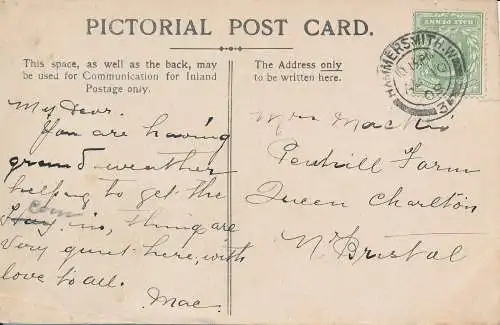 PICTORIAL POST CARD.
This space, as well as the back, may
be used for Communication for Inland
Postage only.
The Address only
to be written here.
HALF PENNY
HAMMERSMITH. W.
08
My Dear.
You are having
grand weather
helping to get the
corn
Hay in, things are
very quiet here, with
love to all.
Mac.
Mrs Mackie
Penhill Farm
Queen Charlton
Nr Bristol